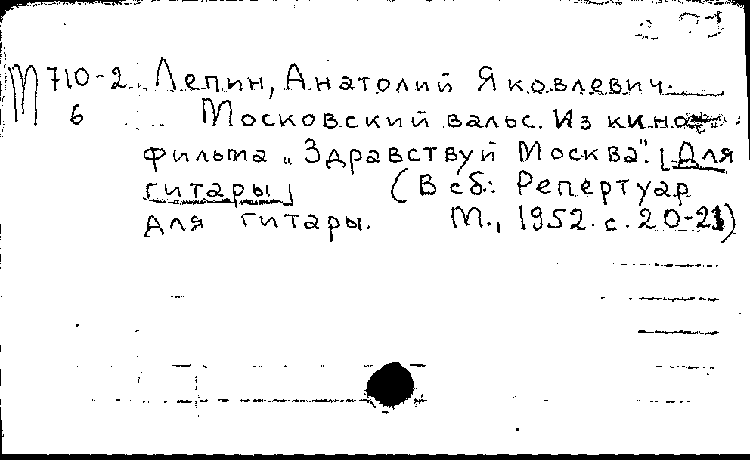 М 710-2 Лепин, Анатолий Яковлевич.
6 Московский вальс. Из кино-
фильма „Здравствуй Москва". [Для
гитары] (В сб: Репертуар
для гитары. М., 1952. с. 20-21)